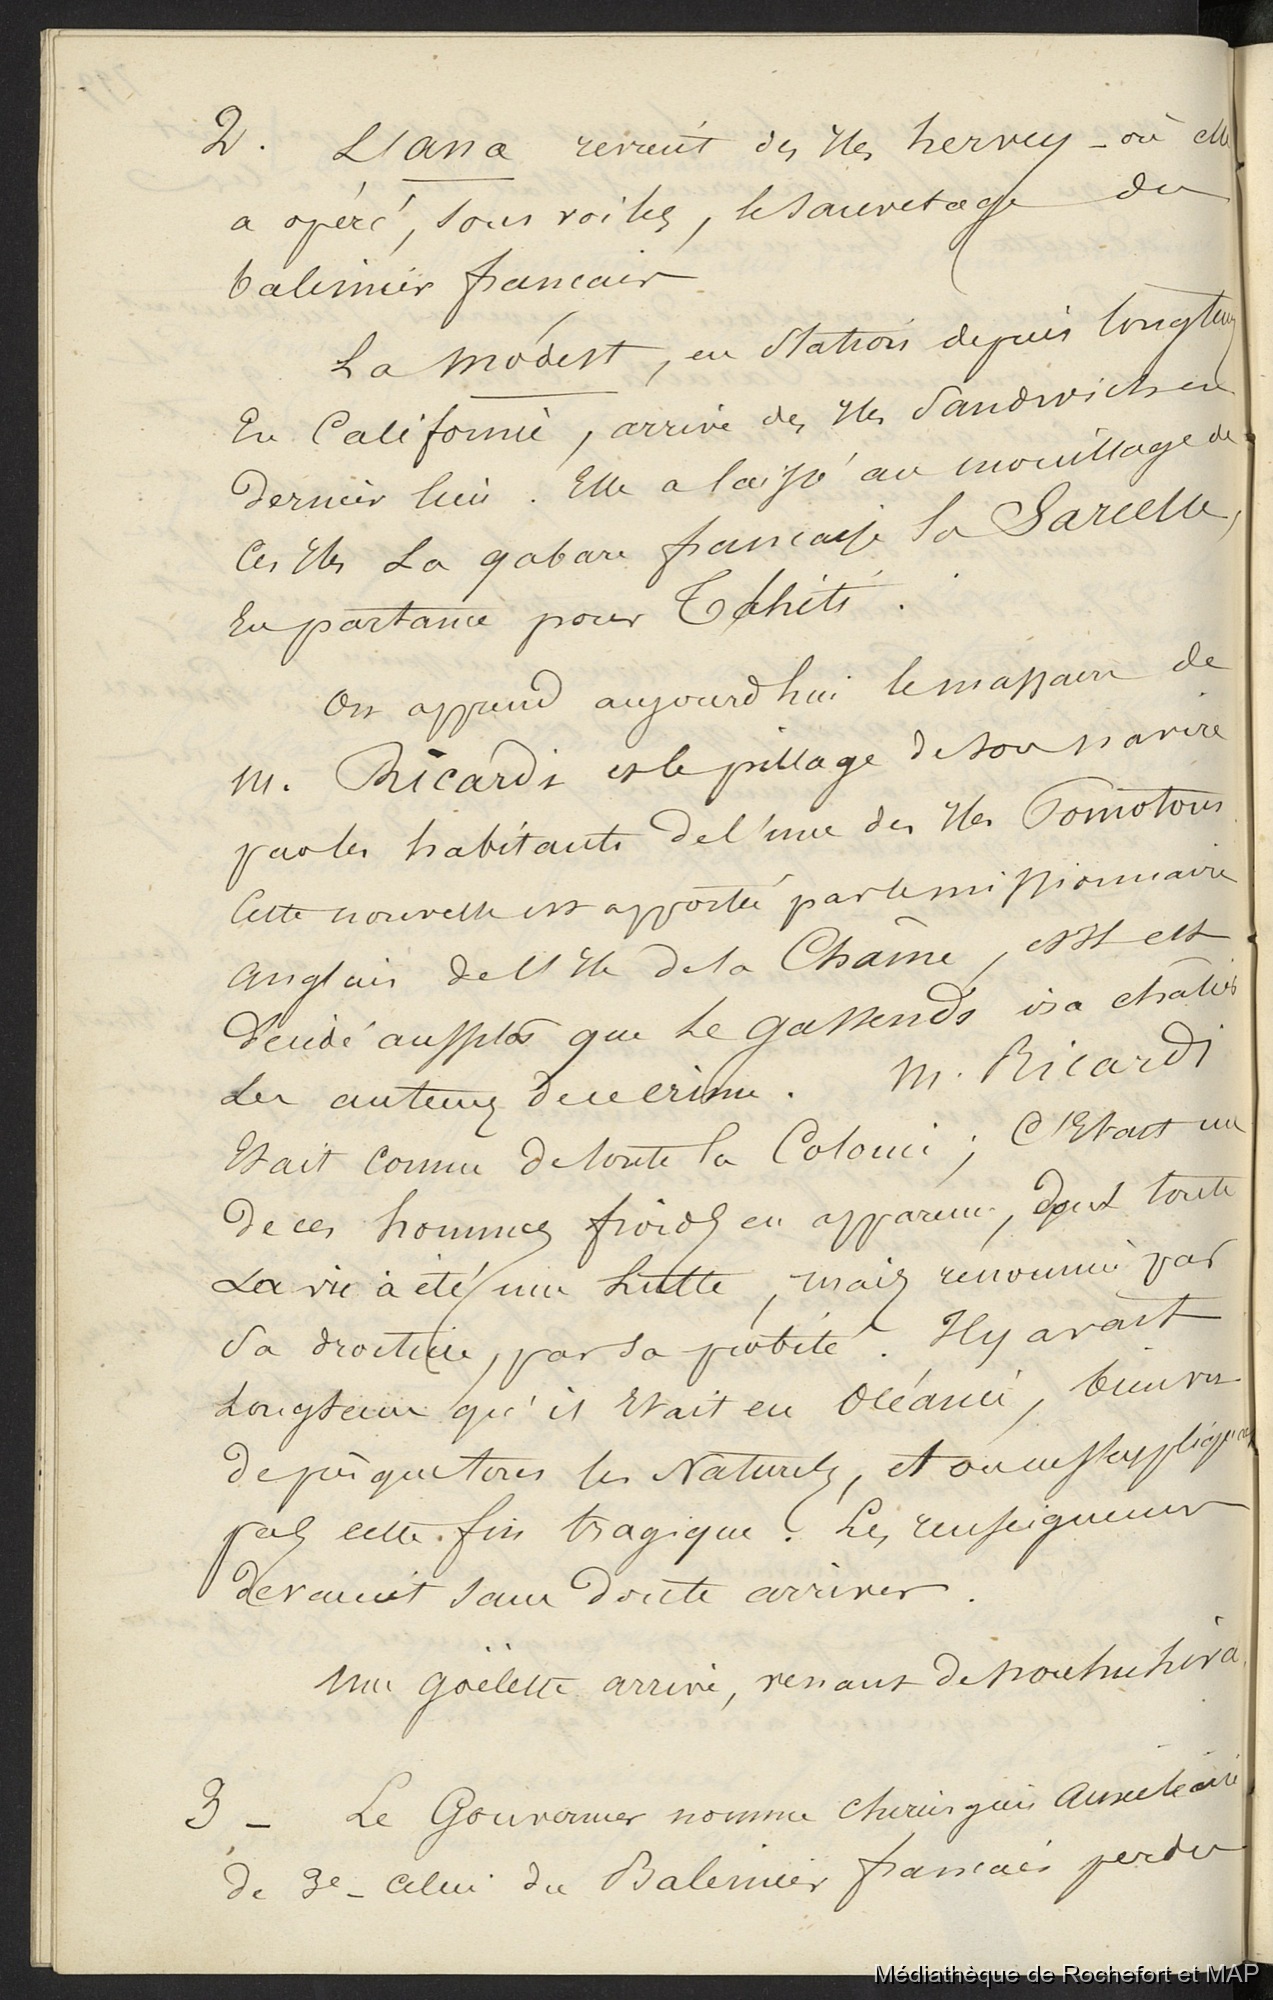 2. L'ana revient des Iles hervey - où elle
a opéré, sous voiles, le sauvetage du
baleinier francais
La modeste, en Station depuis longtems
En Californie, arrive des Iles Sandwich en
dernier lieu. Elle a laissé au mouillage de
Ces Iles La gabare francaise la Sarcelle,
En partance pour Tahiti.
On apprend aujourd'hui le massacre de
M. Ricardi et le pillage de son navire
par les habitants de l'une des Iles Pomotous
Cette nouvelle est apportée par le missionnaire
anglais de l'Ile de la Chaîne, et Il est
décidé aussitôt que Le gassendi ira chatier
Les auteurs de ce crime. M. Ricardi
Etait connu de toute la Colonie; C'Etait un
de ces hommes froids en apparence, dont toute
La vie à été une lutte, mais renommé par
Sa droiture, par sa probité. Il y avait
Longtems qu'il Etait en Océanie, bien vu
de presque tous les Naturels, et on ne s'explique
pas cette fin tragique. Les renseignemens
devaient sans doute arriver.
Une goëlette arrive, venant de Nouhuhiva.
3 - Le Gouverneur nomme chirurgien Auxiliaire
de 3e - celui du Baleinier francais perdu
Médiathèque de Rochefort et MAP